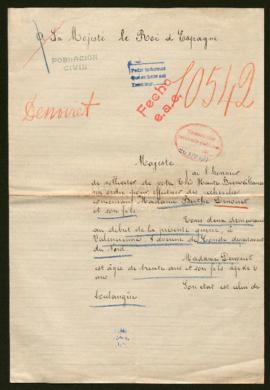 A Sa Majesté le Roi d'Espagne
POBLACION
CIVIL
Denoiret
Fecho
e.a.e.
10542
Majesté
j'ai l'honneur
de solliciter de votre Très Haute Bienveillance
un ordre pour effectuer des recherches
concernant Madame Berthe Denoiret
et son fils
Tous deux demeuraient
au début de la présente guerre, à
Valenciennes, avenue de Condé département
du Nord.
Madame Denoiret
est âgée de trente ans et son fils âgé de 6
ans
Son état est celui de
boulangère